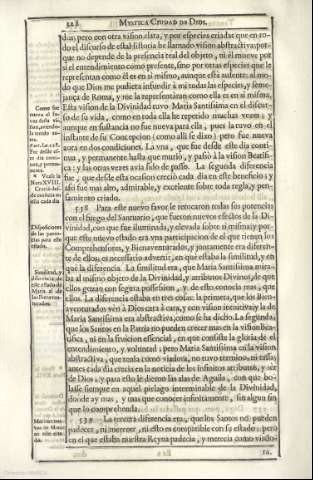 328 MYSTICA CIUDAD DE DIOS.
das; pero con otra vision clara, y por especies criadas que en to-
do el discurso de esta historia he llamado vision abstractiva; por-
que no depende de la presencia real del objeto, ni èl mueve por
sì el entendimiento como presente, sino por otras especies que le
representan como èl es en sì mismo, aunque està ausente: al mo-
do que Dios me pudiera infundir à mì todas las especies, y seme-
jança de Roma, y me la representàran como ella es en sì misma.
Esta vision de la Divinidad tuvo Maria Santissima en el discur-
so de su vida, como en toda ella he repetido muchas vezes; y
aunque en sustancia no fue nueva para ella, pues la tuvo en el
instante de su Concepcion (como allì se dixo) pero fue nueva
aora en dos condiciones. La vna, que fue desde este dia conti-
nua, y permanente hasta que muriò, y passò à la vision Beatifi-
ca: y las otras vezes avia sido de passo. La segunda diferencia
fue, que desde esta ocasion creciò cada dia en este beneficio; y
assi fue mas alto, admirable, y excelente sobre toda regla, y pen-
samiento criado.
538 Para este nuevo favor le retocaron todas sus potencias
con el fuego del Santuario, que fueron nuevos efectos de la Di-
vinidad, con que fue iluminada, y elevada sobre sì misma: y por-
que este nuevo estado era vna participacion de el que tienen los
Comprehensores, y Bienaventurados, y juntamente era diferen-
te de ellos, es necessario advertir, en que estaba la similitud, y en
què la diferencia. La similitud era, que Maria Santissima mira-
ba al mismo objeto de la Divinidad, y atributos Divinos, de que
ellos gozan con segura possession, y de esto conocia mas, que
ellos. La diferencia estaba en tres cosas: la primera, que los Bien-
aventurados vèn à Dios cara à cara, y con vision intuitiva; y la de
Maria Santissima era abstractiva, como se ha dicho. La segunda,
que los Santos en la Patria no pueden crecer mas en la vision Bea-
tifica, ni en la fruicion essencial, en que consiste la gloria de el
entendimiento, y voluntad; pero Maria Santissima en la vision
abstractiva, que tenia como viadora, no tuvo termino, ni tassa;
antes cada dia crecia en la noticia de los infinitos atributos, y sèr
de Dios: y para esto le dieron las alas de Aguila, con que bo-
lasse siempre en aquel pielago interminable de la Divinidad,
donde ay mas, y mas que conocer infinitamente, sin algun fin
que lo comprehenda.
539 La tercera diferencia era, que los Santos no pueden
padecer, ni merecer, ni esto es compatible con su estado: pero
en el que estaba nuestra Reyna padecia, y merecia como viado-
ra.
Como fue
nueva el fa-
Desde este dia
Num. XVIII.
cada dia
Disposiciones
de las poten-
cias para este
estado.
Similitud, y